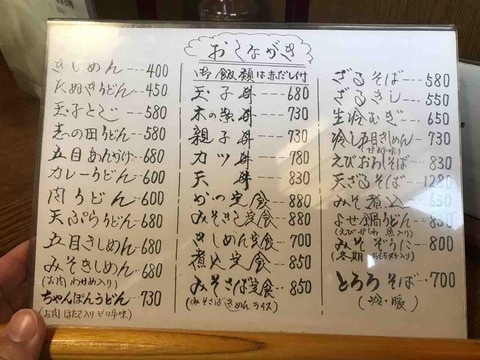 おしながき
きしめん 400
たぬきうどん 450
玉子とじ 580
志の田うどん 580
五目あんかけ 680
カレーうどん 600
肉うどん 600
天ぷらうどん 680
五目きしめん 680
みそきしめん 680
(お肉 わかめ入り)
ちゃんぽんうどん 730
(お肉 ほたて入り ピリ辛味)
御飯類は赤だし付
玉子丼 680
木の葉丼 730
親子丼 730
カツ丼 780
天丼 830
かつ定食 880
みそきし定食 880
きしめん定食 700
煮込定食 850
みそさば定食 850
(みそさば きしめん ライス)
ざるそば 580
ざるきし 550
生冷むぎ 650
冷し五目きしめん 730
えびおろしそば 830
天ざるそば 1280
みそ煮込 630
よせ鍋うどん 850
みそぞうに 800
とろろそば 700
(冷・暖)